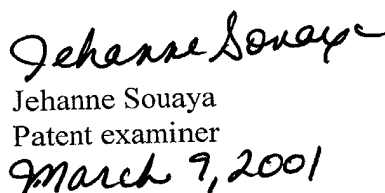 Jehanne Souaya
Jehanne Souaya
Patent examiner
March 9, 2001